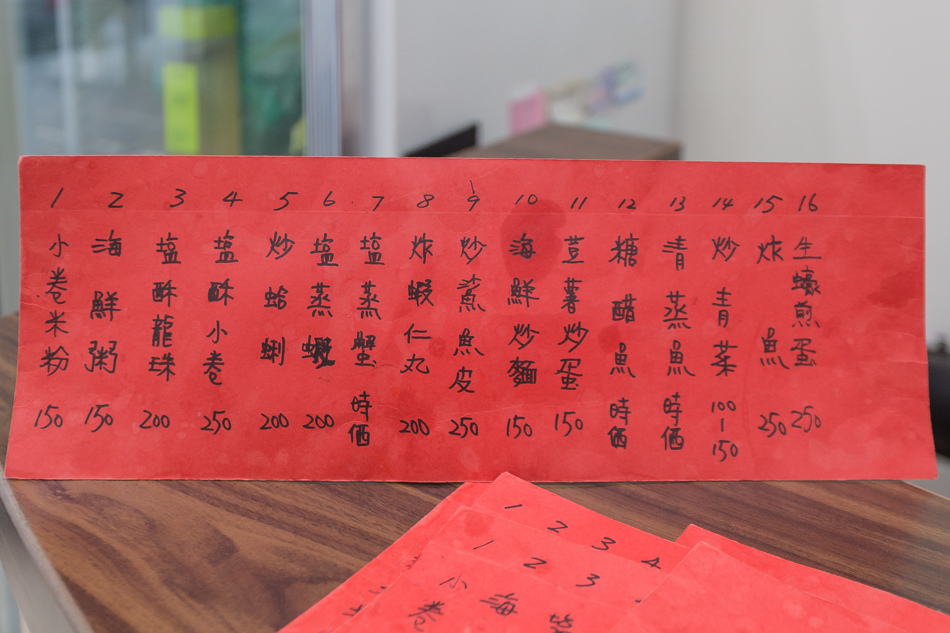 1 小卷米粉 150
2 海鮮粥 150
3 塩酥龍珠 200
4 塩酥小卷 250
5 炒蛤蜊 200
6 塩蒸蝦 200
7 塩蒸蟹 時価
8 炸蝦仁丸 200
9 炒鯊魚皮 250
10 海鮮炒麵 150
11 荳薯炒蛋 150
12 糖醋魚 時価
13 青蒸魚 時価
14 炒青菜 100-150
15 炸魚 250
16 生蠔煎蛋 250
1 2 3 4
1 小卷
2 海
3